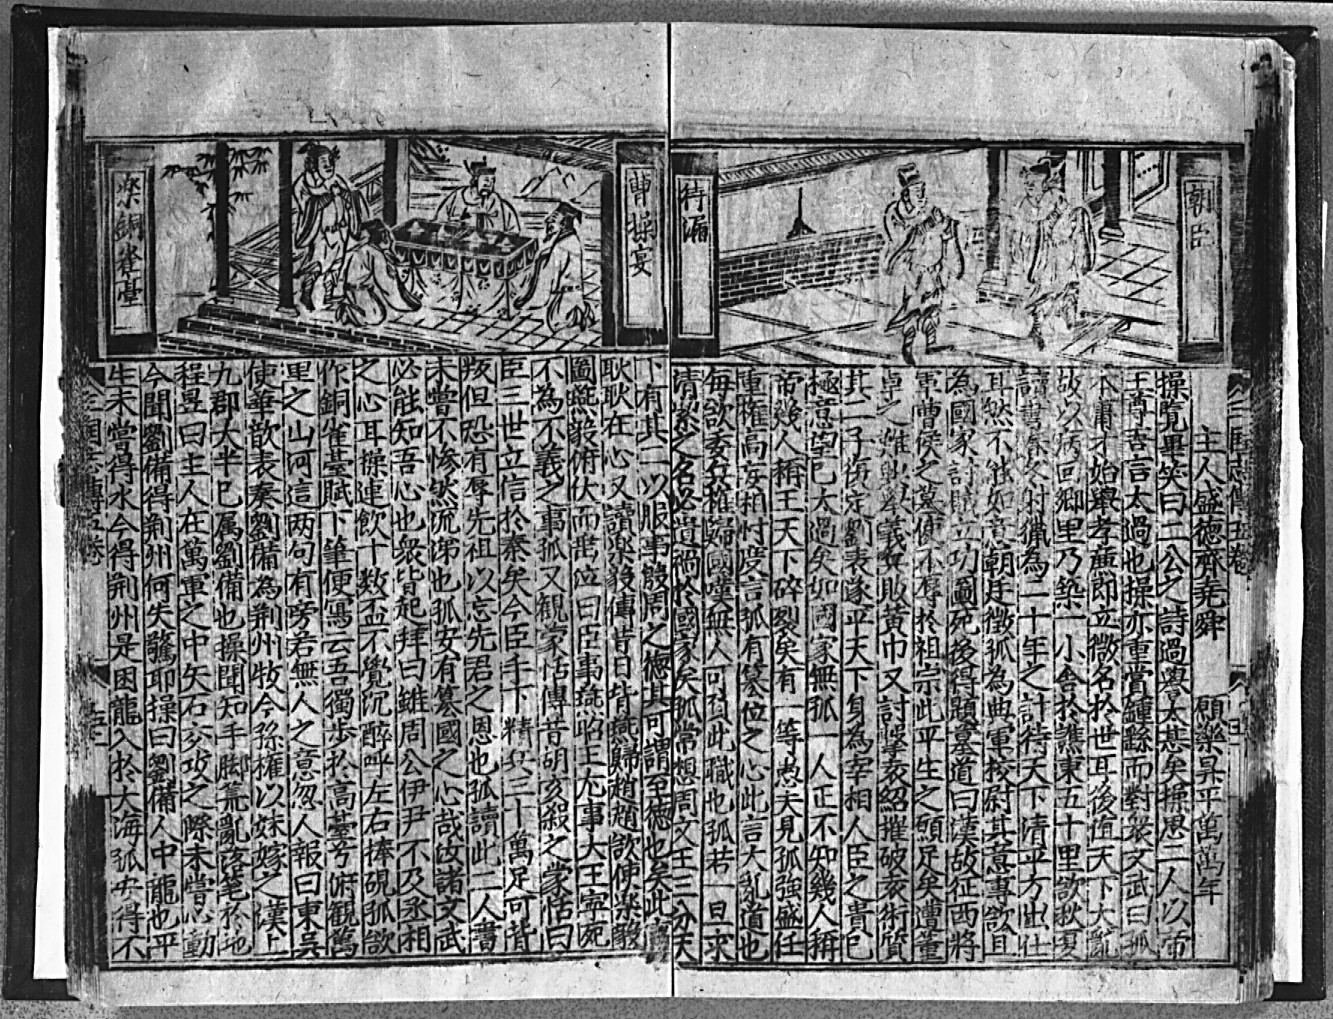 朝臣
待漏
主人盛德齊堯舜　願樂昇平萬萬年
操覽畢笑曰二公之詩過譽太甚矣操思二人以帝
王尊幸言太過也操亦重賞鍾繇而對衆文武曰孤
本庸才始舉孝廉即立微名於世耳後值天下大亂
故以病回鄉里乃築一小舍於譙東五十里欲秋夏
讀書春冬射獵為二十年之計待天下清平方出仕
耳然不能如意朝廷徵孤為典軍校尉其意專欲且
為國家討賊立功圖死後得題墓道曰漢故征西將
軍曹侯之墓使不辱於祖宗此平生之願足矣遭董
卓之難興舉義兵敗黃巾又討擊袁紹摧破袁術質
其二子複定劉表遂平天下身為宰相人臣之貴已
極意望已太過矣如國家無孤一人正不知幾人稱
帝幾人稱王天下碎裂矣有一等愚夫見孤強盛任
重權高妄相忖度言孤有篡位之心此言大亂道也
每欲委兵權歸國嘆無人可付此職也孤若一旦求
清潔之名必遺禍於國家矣孤常想周文王三分天
曹操宴
樂銅雀臺
下有其二以服事殷周之德其可謂至德也矣此言
耿耿在心又讀樂毅傳昔日背燕歸趙趙欲使樂毅
圖燕毅俯伏而泣曰臣事燕昭王尤事大王寧死
不為不義之事孤又觀蒙恬傳昔胡亥殺之蒙恬曰
臣三世立信於秦矣今臣手下精兵三十萬足可背
叛但恐有辱先祖以忘先君之恩也孤讀此二人書
未嘗不慘然流涕也孤安有篡國之心哉汝諸文武
必能知吾心也衆皆起拜曰雖周公伊尹不及丞相
之心耳操連飲十數盃不覺沉醉呼左右捧硯孤欲
作銅雀臺賦下筆便寫云吾獨步於高臺兮俯觀萬
里之山河這两句有旁若無人之意忽人報曰東吳
使華歆表奏劉備為荊州牧今孫權以妹嫁之漢上
九郡大半已属劉備也操聞知手脚荒亂落筆於地
程昱曰主人在萬軍之中矢石交攻之際未嘗心動
今聞劉備得荊州何失驚耶操曰劉備人中龍也平
生未嘗得水今得荊州是困龍入於大海孤安得不